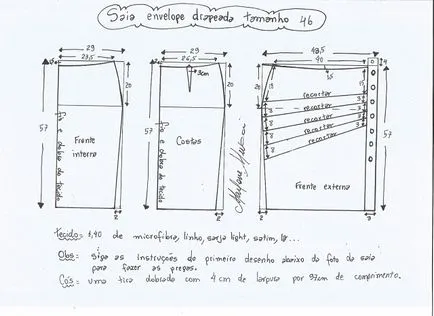 Saia envelope drapeada tamanho 46
29
23,5
20
57
Fio e dobra do tecido
Frente
interna
2
29
26,5
3cm
20
Fio e dobra do tecido
Costas
2
Marlene Mukai
48,5
40
4
15
15
20
recortar
recortar
recortar
recortar
recortar
3
3
3
3
8
8
8
8
57
Frente externa
2
3
Tecido= 1,40 de microfibra, linho, sarja light, satim,
Obs: Siga as instruções do primeiro desenho abaixo da foto da saia
para fazer as pregas.
Cós= uma tira dobrada com 4cm de largura por 97cm de comprimento.